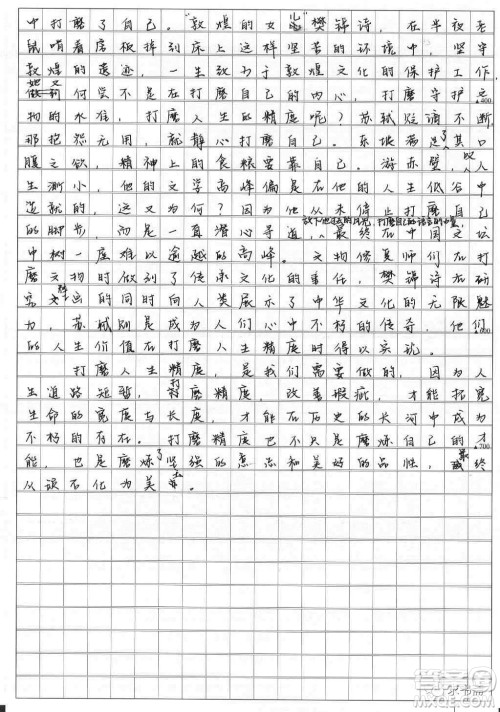 中打磨了自己。“敦煌的女儿”樊锦诗，在半夜老
鼠啃着房板掉到床上这样坚苦的环境中，坚守
敦煌的遗迹，一生致力于敦煌文化的保护工作
她又何尝不是在打磨自己的内心，打磨守护文
物的水准，打磨人生的精度呢？苏轼贬谪不断
那抱怨无用，就静心打磨自己。东坡满足了其口
腹之欲，精神上的食粮要靠自己。游赤壁，以人
生渺小，他的文学高峰偏是在他的人生低谷中
造就的，这又为何？因为他从未停止打磨自己
的脚步，而是一直潜心寻道，最终在中国文坛
中树一座难以逾越的高峰。文物修复师们在打
磨文物时做到了传承文化的责任，樊锦诗在研
究的同时向人类展示了中华文化的无限魅
力，苏轼则是成为人们心中不朽的传奇，他们
的人生价值在打磨人生精度时得以实现。
打磨人生精度，是我们需要做的，因为人
生道路短暂，打磨精度，改善瑕疵，才能拓宽
生命的宽度与长度，才能在历史的长河中成为
不朽的存在。打磨精度也不只是磨炼自己的才
能，也是磨炼了坚强的意志和美好的品性，最终
从顽石化为美玉。